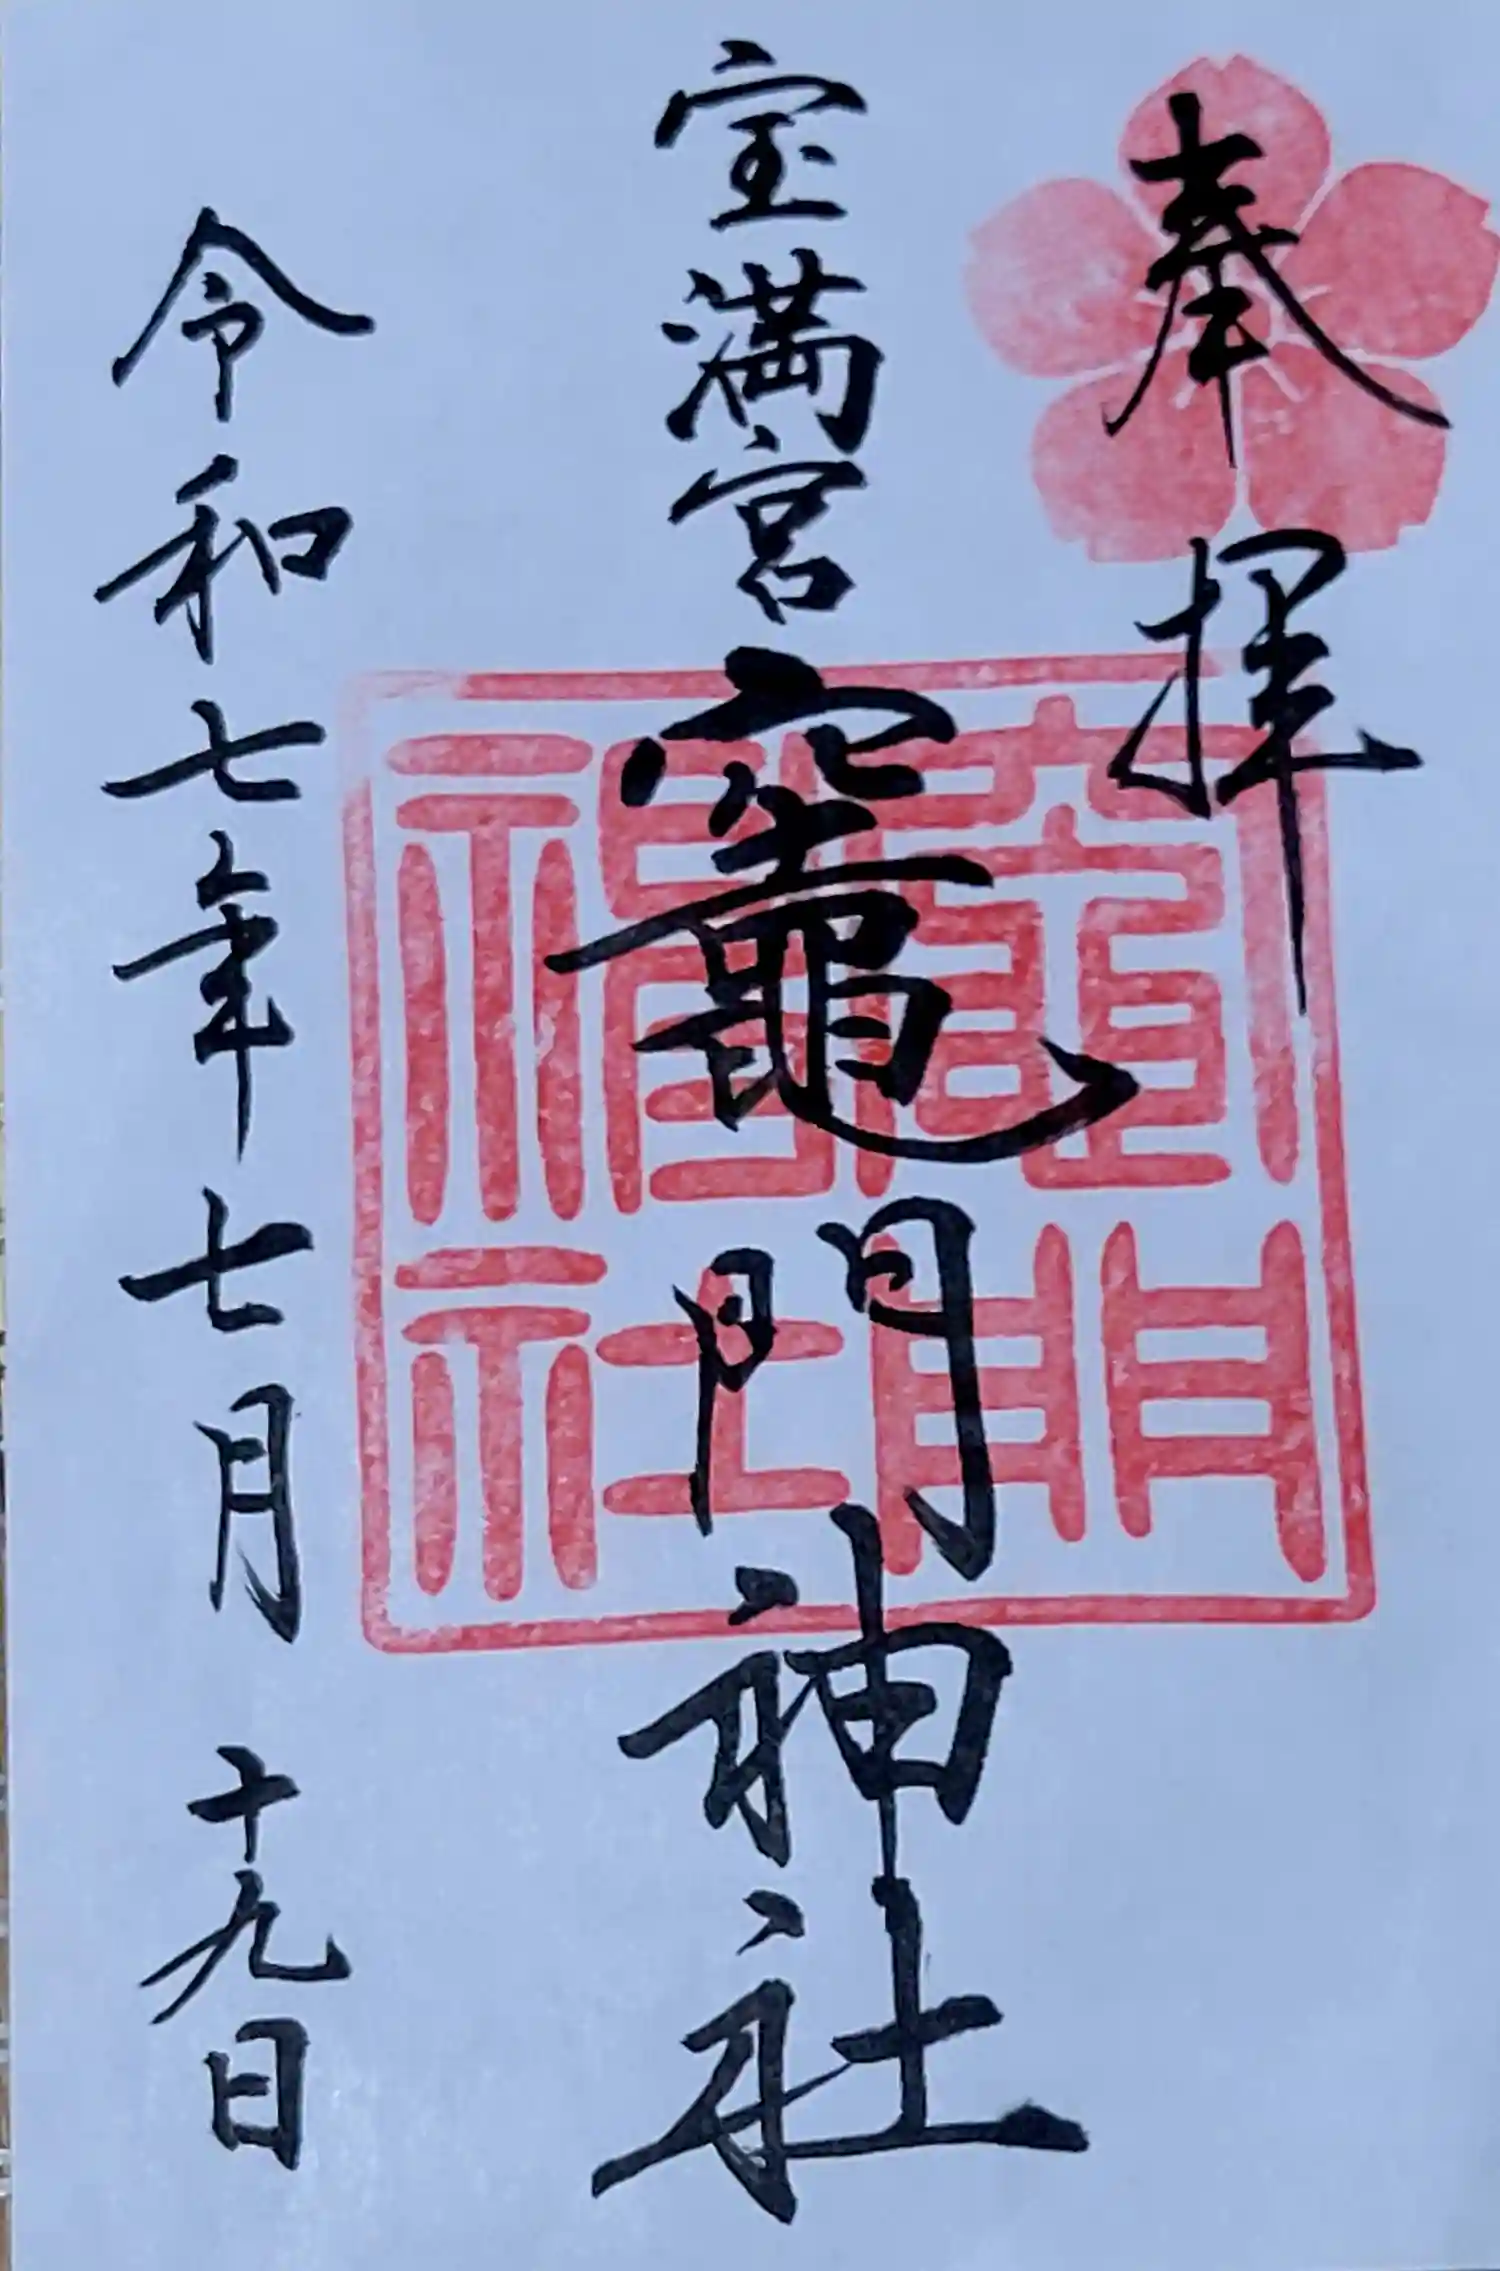 奉拝
宝満宮竈門神社
令和七年七月十九日